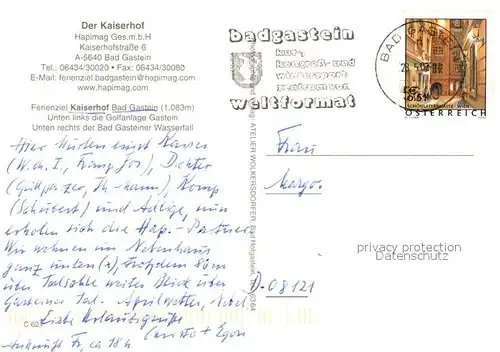 Der Kaiserhof
Hapimag Ges.m.b.H
Kaiserhofstraße 6
A-5640 Bad Gastein
Tel.: 06434/30020 • Fax: 06434/30080
E-Mail: ferienziel.badgastein@hapimag.com
www.hapimag.com
Ferienziel Kaiserhof Bad Gastein (1.083m)
Unten links die Golfanlage Gastein
Unten rechts der Bad Gasteiner Wasserfall
Hier einst Kaiser
(W. ch. I, Franz Jos), Dichter
(Grillparzer, Th. Mann), Komp.
(Schubert) und Adlige, nun
erholen sich die Hap.-Partner
Wir wohnen im Nebenhaus
ganz unten (x), trotzdem 80m
über Talsohle weiter Blick über
Gasteiner Tal. Aprilwetter,
Liebe Urlaubsgrüße
+ Egon
Ankunft Fr, ca 18 h
C 62
badgastein
kur-,
kongreß- und
wintersport
zentrum von
weltformat
BAD GASTEIN
€ 0,51
SCHÖNLATERNGASSE · WIEN
ÖSTERREICH
ATELIER WOLKERSDORFER, Bad Hofgastein
Frau
Margo.
D-08121
privacy protection
Datenschutz